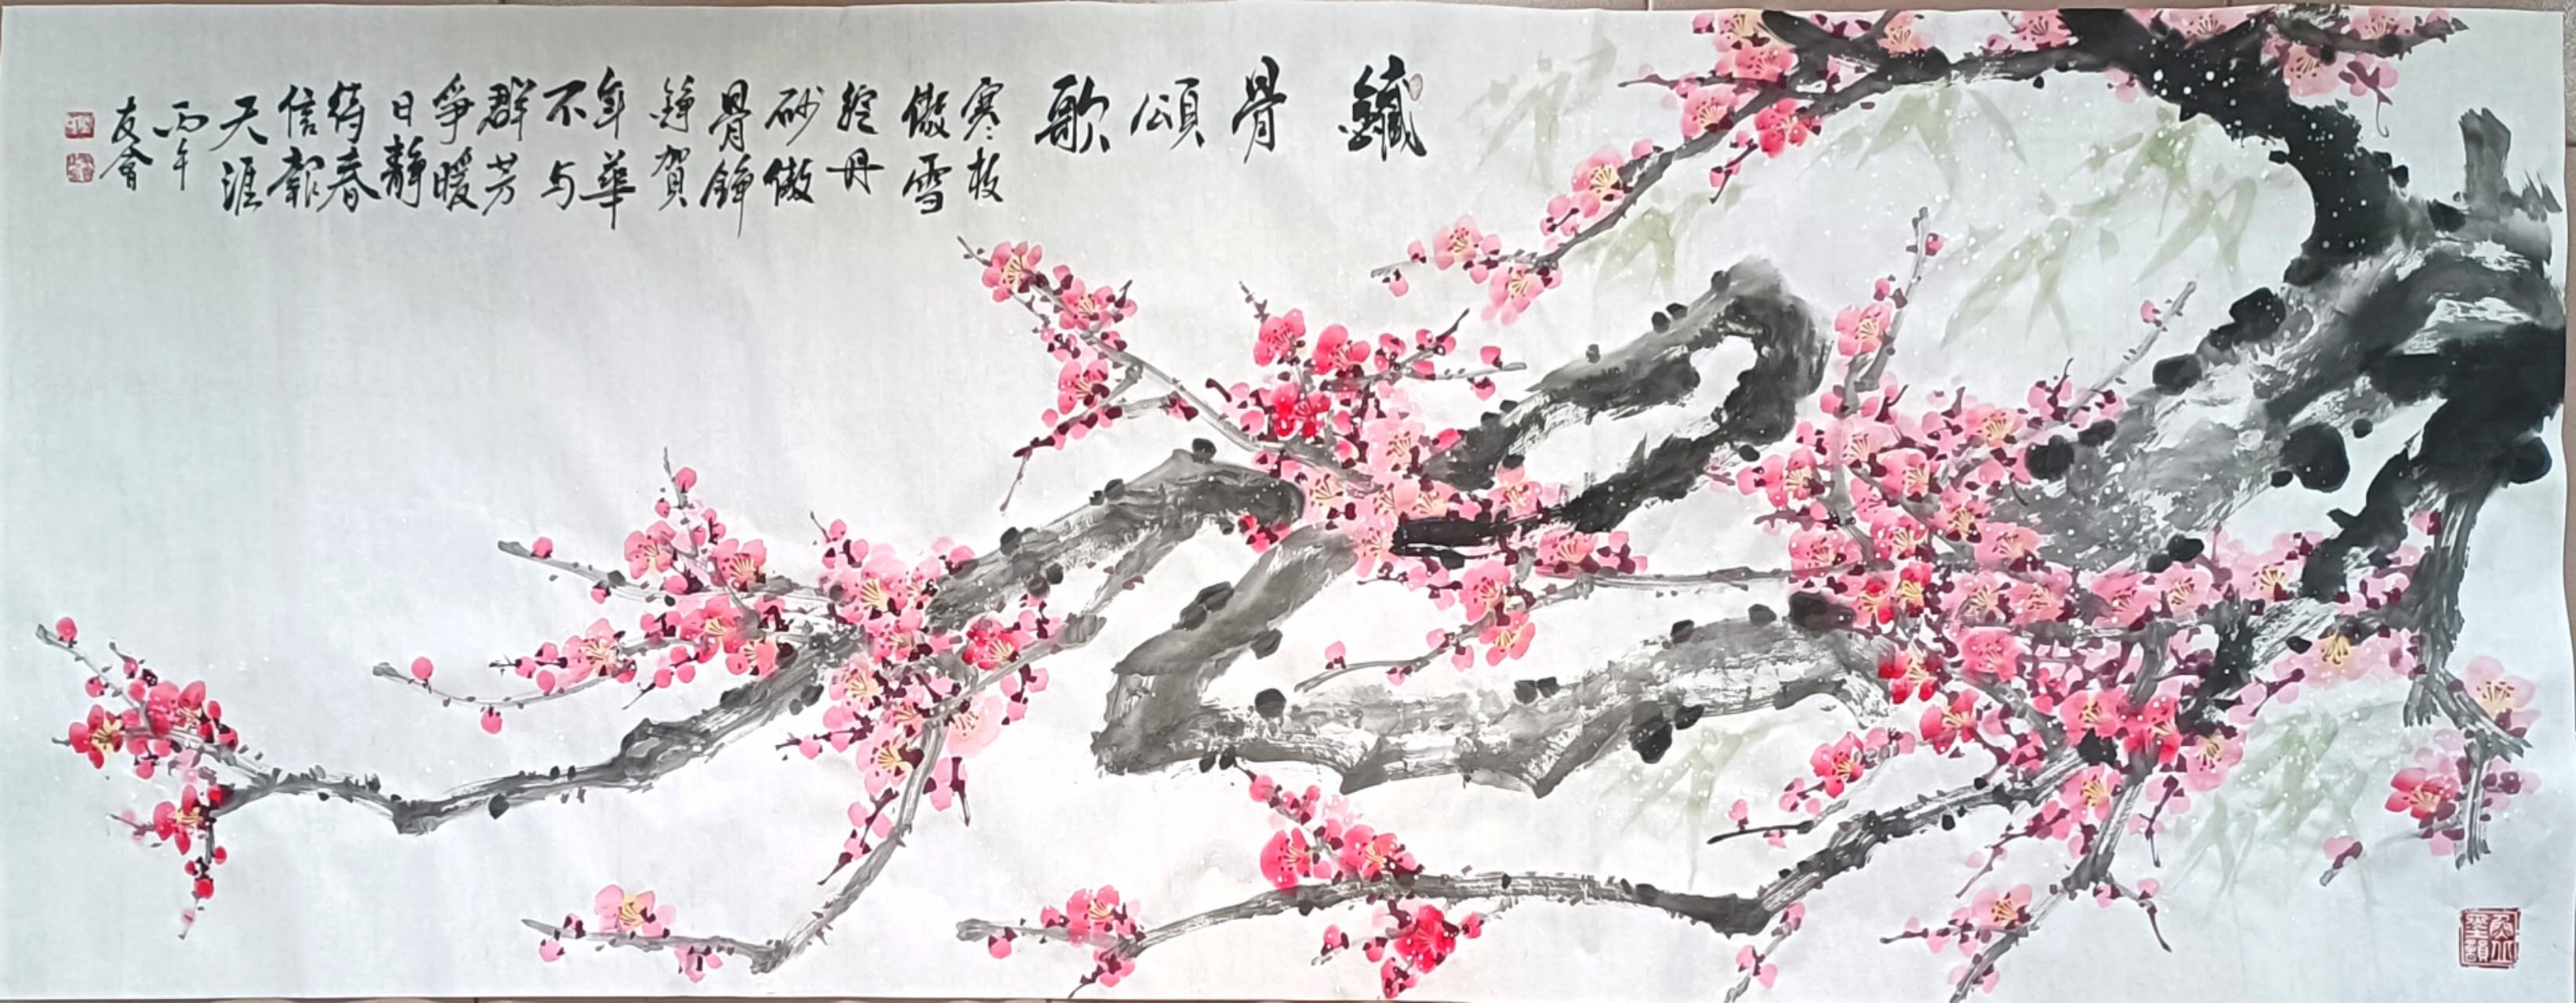 鐵骨頌歌
寒枝
傲雪
綻丹
砂傲
骨錚
錚賀
年華
不与
群芳
爭暖
日靜
待春
信報
天涯
丙午
友會